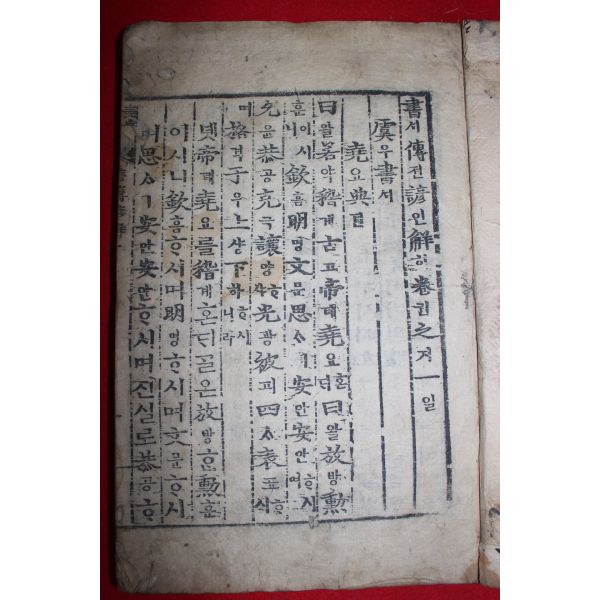 書셔傳젼諺언解ᄒᆡ卷권之지一일
虞우書셔
堯요典뎐
曰왈若약稽계古고帝뎨堯요혼ᄃᆡ曰왈放방勳
훈이시니欽흠明명文문思ᄉᆞㅣ安안安안ᄒᆞ시며
允윤恭공克극讓양ᄒᆞ샤光광被피四ᄉᆞ表표ᄒᆞ시
며格격于우上샹下하ᄒᆞ시니라
녯帝뎨堯요를稽계혼ᄃᆡᄀᆞᆯ온放방ᄒᆞᆫ勳훈
이시니欽흠ᄒᆞ시며明명ᄒᆞ시며文문ᄒᆞ시
며思ᄉᆞㅣ安안安안ᄒᆞ시며진실로恭공ᄒᆞ